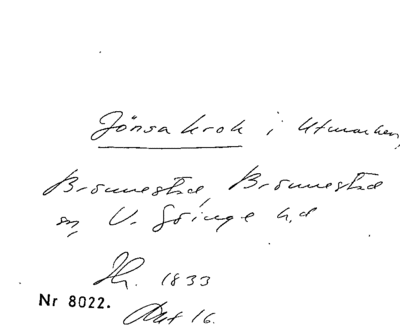 Jönsa krok i Utmarken,
Brönnestad, Brönnestad
sn, V. Göinge h.d
Hy. 1833
Nr 8022.
Akt 16.